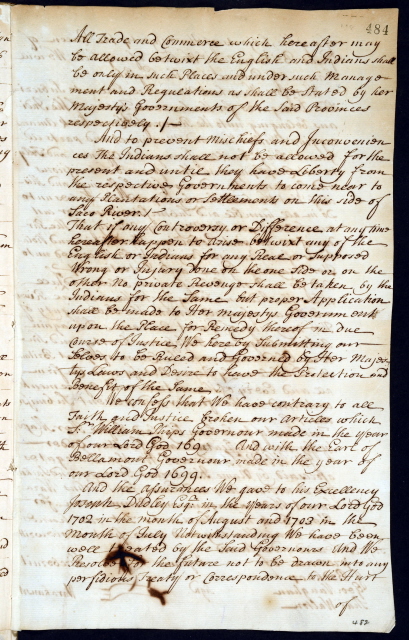 484
All Trade and Commerce which hereafter may
be allowed betwixt the English and Indians shall
be only in such Places and under such Manage-
ment and Regulations as shall be Stated by her
Majestys Governments of the Said Provinces
respectively. /—
And to prevent Mischiefs and Inconvenien
ces The Indians shall not be allowed for the
present and until they have Liberty from
the respective Governments to come near to
any Plantations or Settlements on this side of
Saco River. /
That if any Controversy or Difference at any time
hereafter happen to Arise betwixt any of the
English or Indians for any Real or Suposed
Wrong or Injury done on the one Side or on the
other No private Revenge shall be taken by the
Indians for the Same but proper Application
shall be made to Her Majestys Government
upon the Place for Remedy thereof in due
Course of Justice We hereby Submitting our
Selves to be Ruled and Governed by Her Majes
tys Laws and Desire to have the Protection and
benefit of the Same
We confess that We have contrary to all
Faith and Justice broken our Articles which
Sr. William Phips Governour made in the year
of our Lord God 169 And with the Earl of
Bellamont Governour made in the year of
our Lord God 1699.
And the Assurances We gave to his Excellency
Joseph Dudley Esqr. in the years of our Lord God
1702 in the month of August and 1703 in the
Month of July Notwithstanding We have been
well treated by the Said Governours And We
Resolve for the future not to be drawn into any
perfidious Treaty or Correspondence to the Hurt
of
482